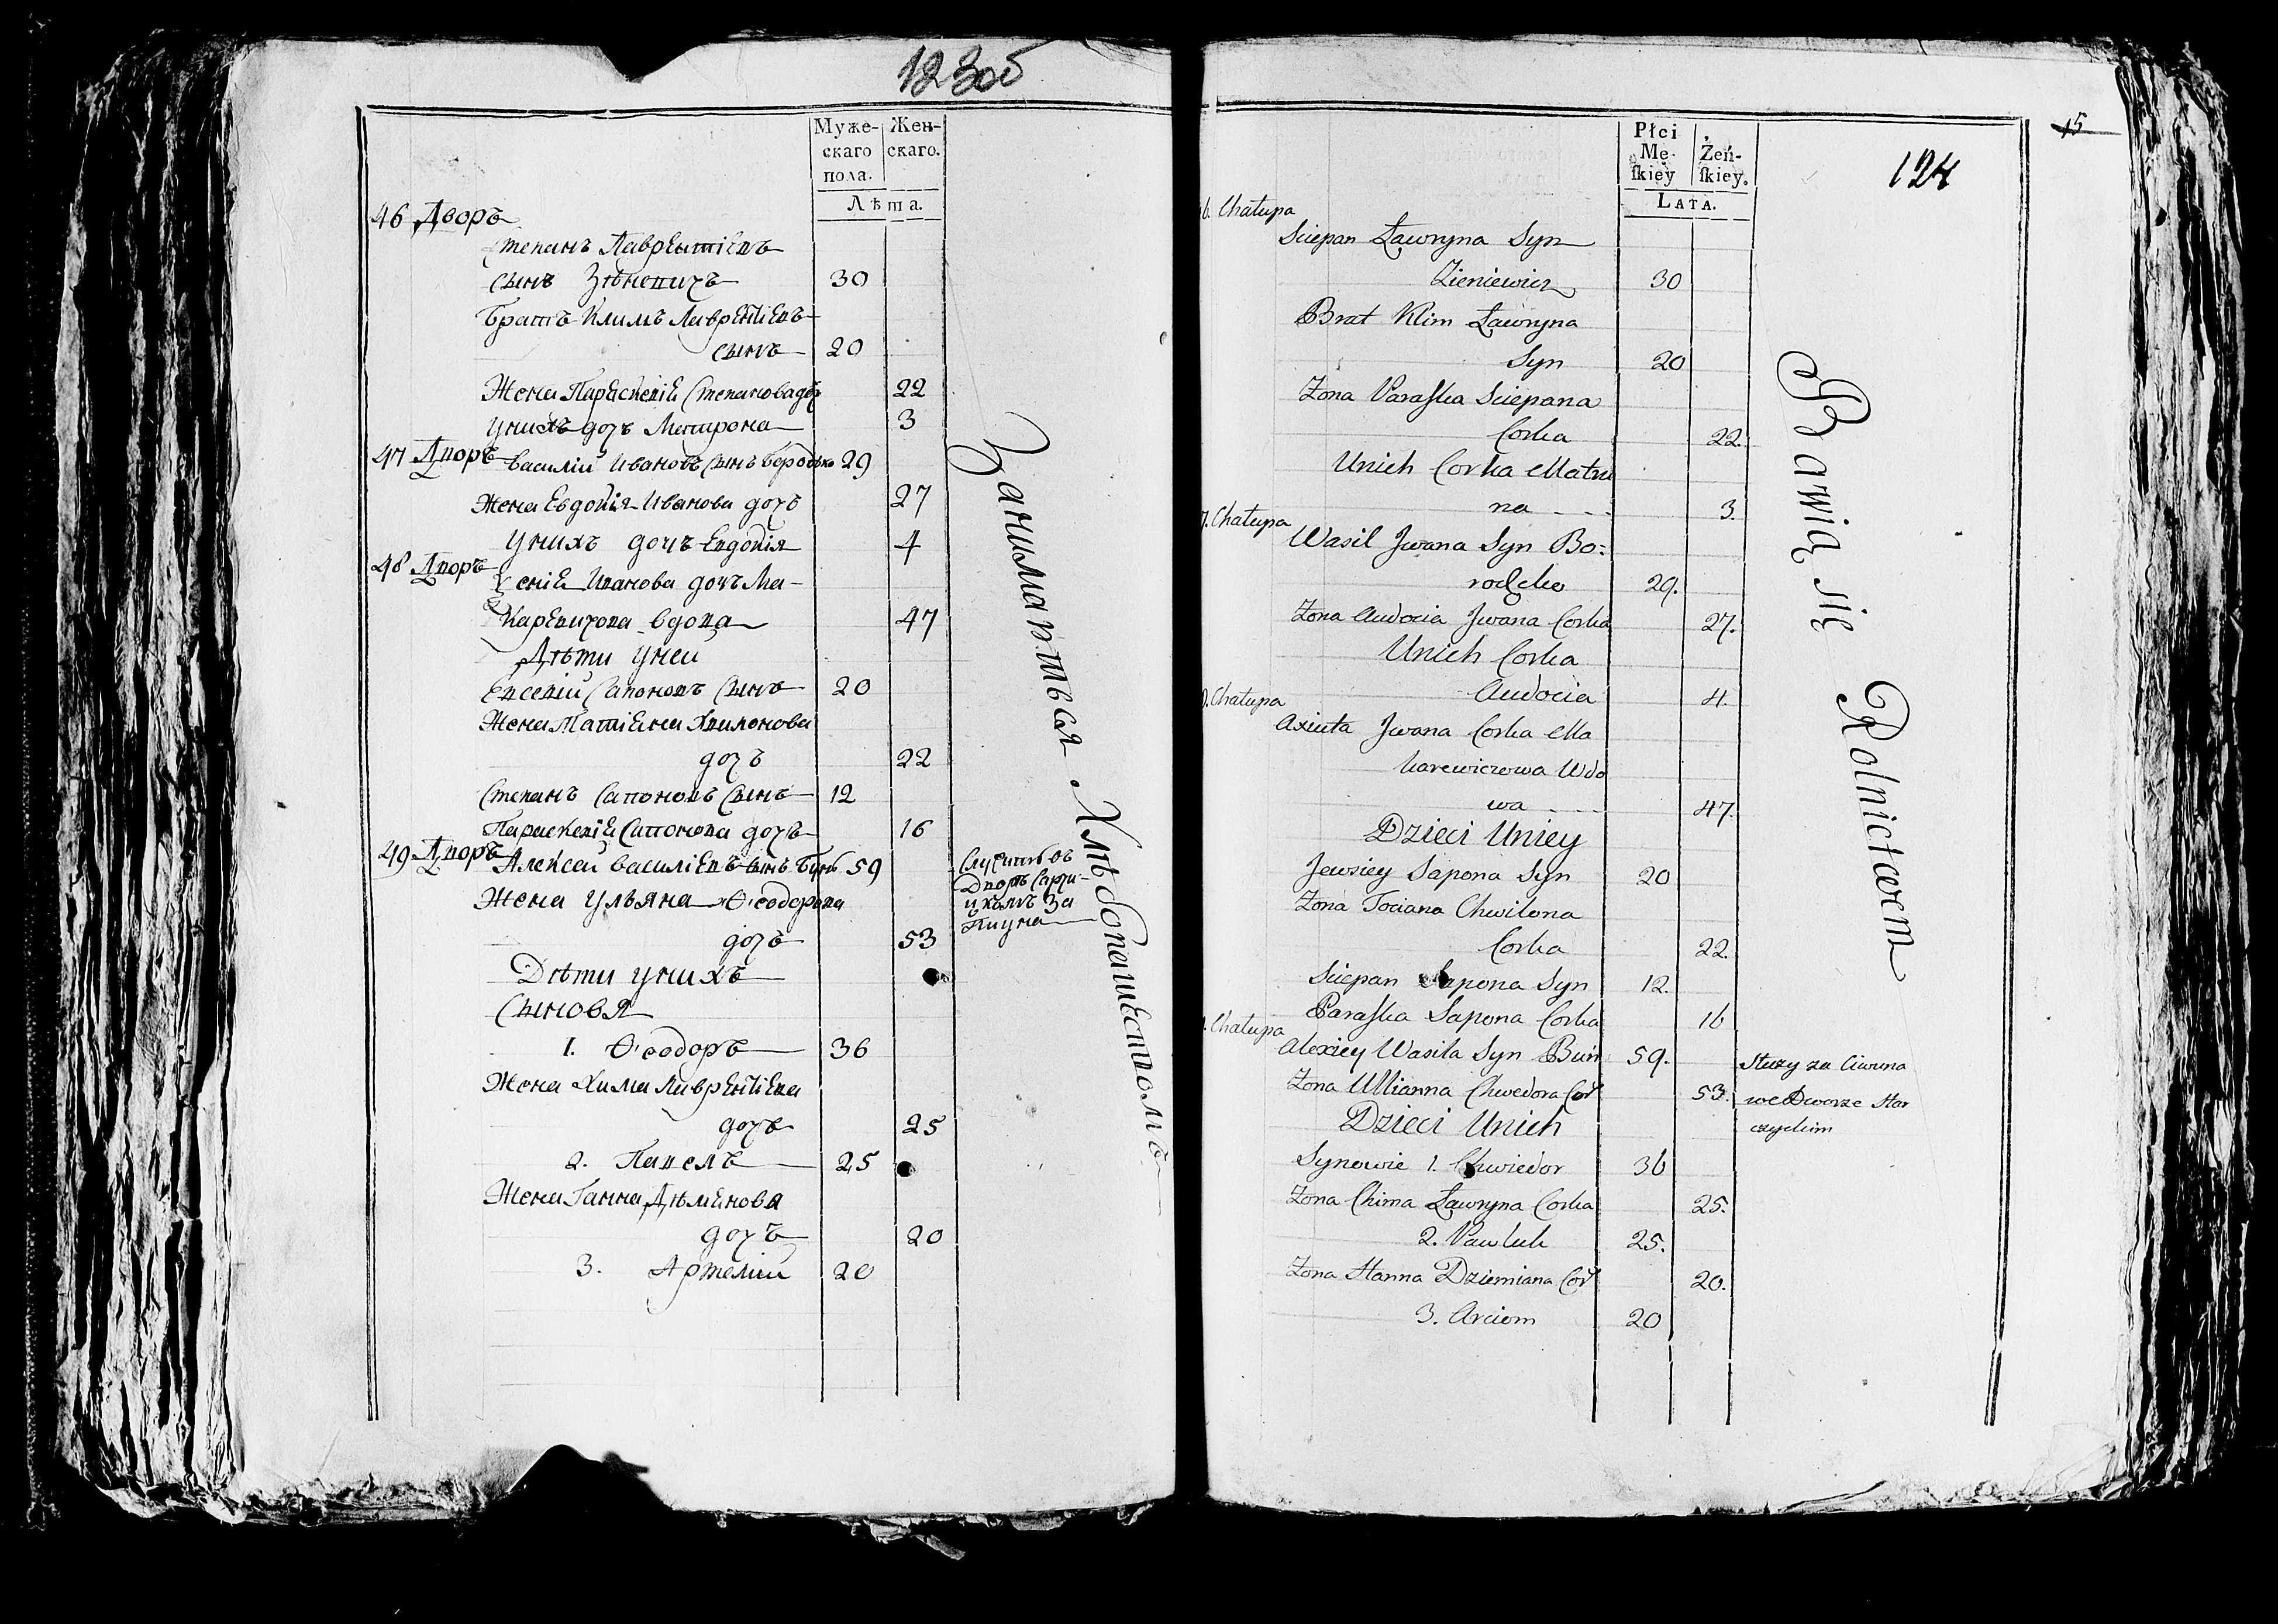 123об
Муже- Жен-
скаго скаго.
пола.
Лѣта.
46 Дворъ
Степанъ Лаврентіевъ
сынъ Зѣневичъ 30
Братъ Климъ Лаврентіевъ
сынъ 20
Жена Параскевія Степанова доч 22
унихъ дочъ Матрона 3
47 Дворъ
Василій Ивановъ сынъ Бородько 29
Жена Евдокія Иванова дочъ 27
Унихъ дочъ Евдокія 4
48 Дворъ
Ксенія Иванова дочъ Ма-
каревичова вдова 47
Дѣти унеи
Евсевій Сапоновъ Сынъ 20
Жена Татіена Хвилонова
дочъ 22
Степанъ Сапоновъ Сынъ 12
Параскевія Сапонова дочъ 16
49 Дворъ
Алексей Василіевъ сынъ Бунь 59
Жена Ульяна Ѳеодорова
дочъ 53
Дѣти унихъ
Сыновя
1. Ѳеодоръ 36
Жена Хима Лаврентіева
дочъ 25
2. Павелъ 25
Жена Ганна Дѣменова
дочъ 20
3. Артемій 20
Занимаються Хлѣбопашествомъ
Płci
Mę- Żeń-
ſkiey ſkiey.
LATA.
15
124
Chałupa
Sciepan Ławryna Syn
Zieniewicz 30
Brat Klim Ławryna
Syn 20
Zona Paraſka Sciepana
Corka 22.
Unich Corka Matru
na - - - 3.
Chałupa
Wasil Jwana Syn Bo:
rodzko 29.
Zona Audocia Jwana Corka 27.
Unich Corka
Audocia 4.
Chałupa
Axiuta Jwana Corka Ma
karewiczowa Wdo
wa - - - 47.
Dzieci Uniey
Jewsiey Sapona Syn 20
Zona Tociana Chwilona
Corka 22.
Sciepan Sapona Syn 12.
Paraſka Sapona Corka 16
Chałupa
Alexiey Wasila Syn Buń 59.
Zona Ullianna Chwedora Cor 53.
Dzieci Unich
Synowie 1. Chwiedor 36
Zona Chima Ławryna Corka 25.
2. Pawluk 25.
Zona Hanna Dziemiana Cor 20.
3. Arciom 20
Służy za Ciwuna
we Dworze Star
czyckim
Bawią się Rolnictwem